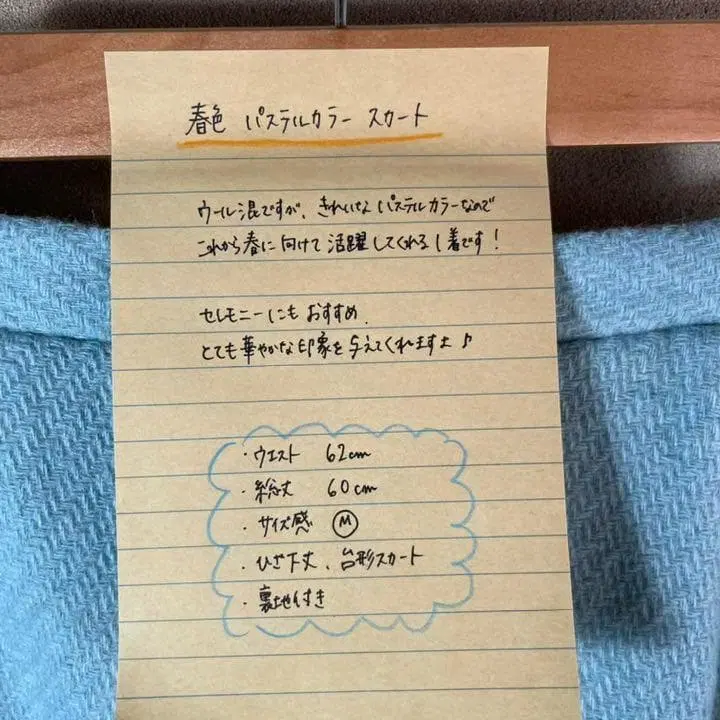 春色 パステルカラー スカート
ウール混ですが、きれいなパステルカラーなので
これから春に向けて活躍してくれる1着です！
セレモニーにもおすすめ。
とても華やかな印象を与えてくれますよ♪
・ウエスト 62cm
・総丈 60cm
・サイズ感 Ⓜ
・ひざ下丈、台形スカート
・裏地付き